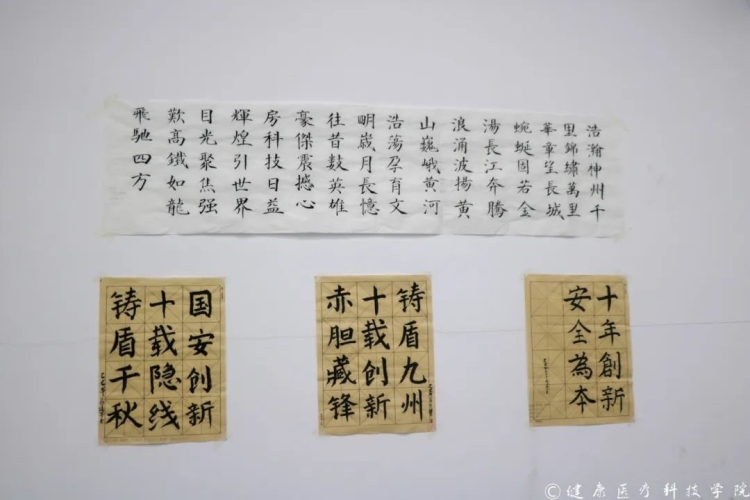 浩瀚神州千
里錦繡萬里
華章望長城
蜿蜒固若金
湯長江奔騰
浪涌波揚黄
山巍峨黄河
浩蕩孕育文
明歲月長憶
往昔数英雄
豪傑震撼心
房科技日益
輝煌引世界
目光聚焦强
歎高鐵如龍
飛馳四方
国安创新
十载隐线
铸盾千秋
铸盾九州
十载创新
赤胆藏锋
十年創新
安全為本
©健康医疗科技学院